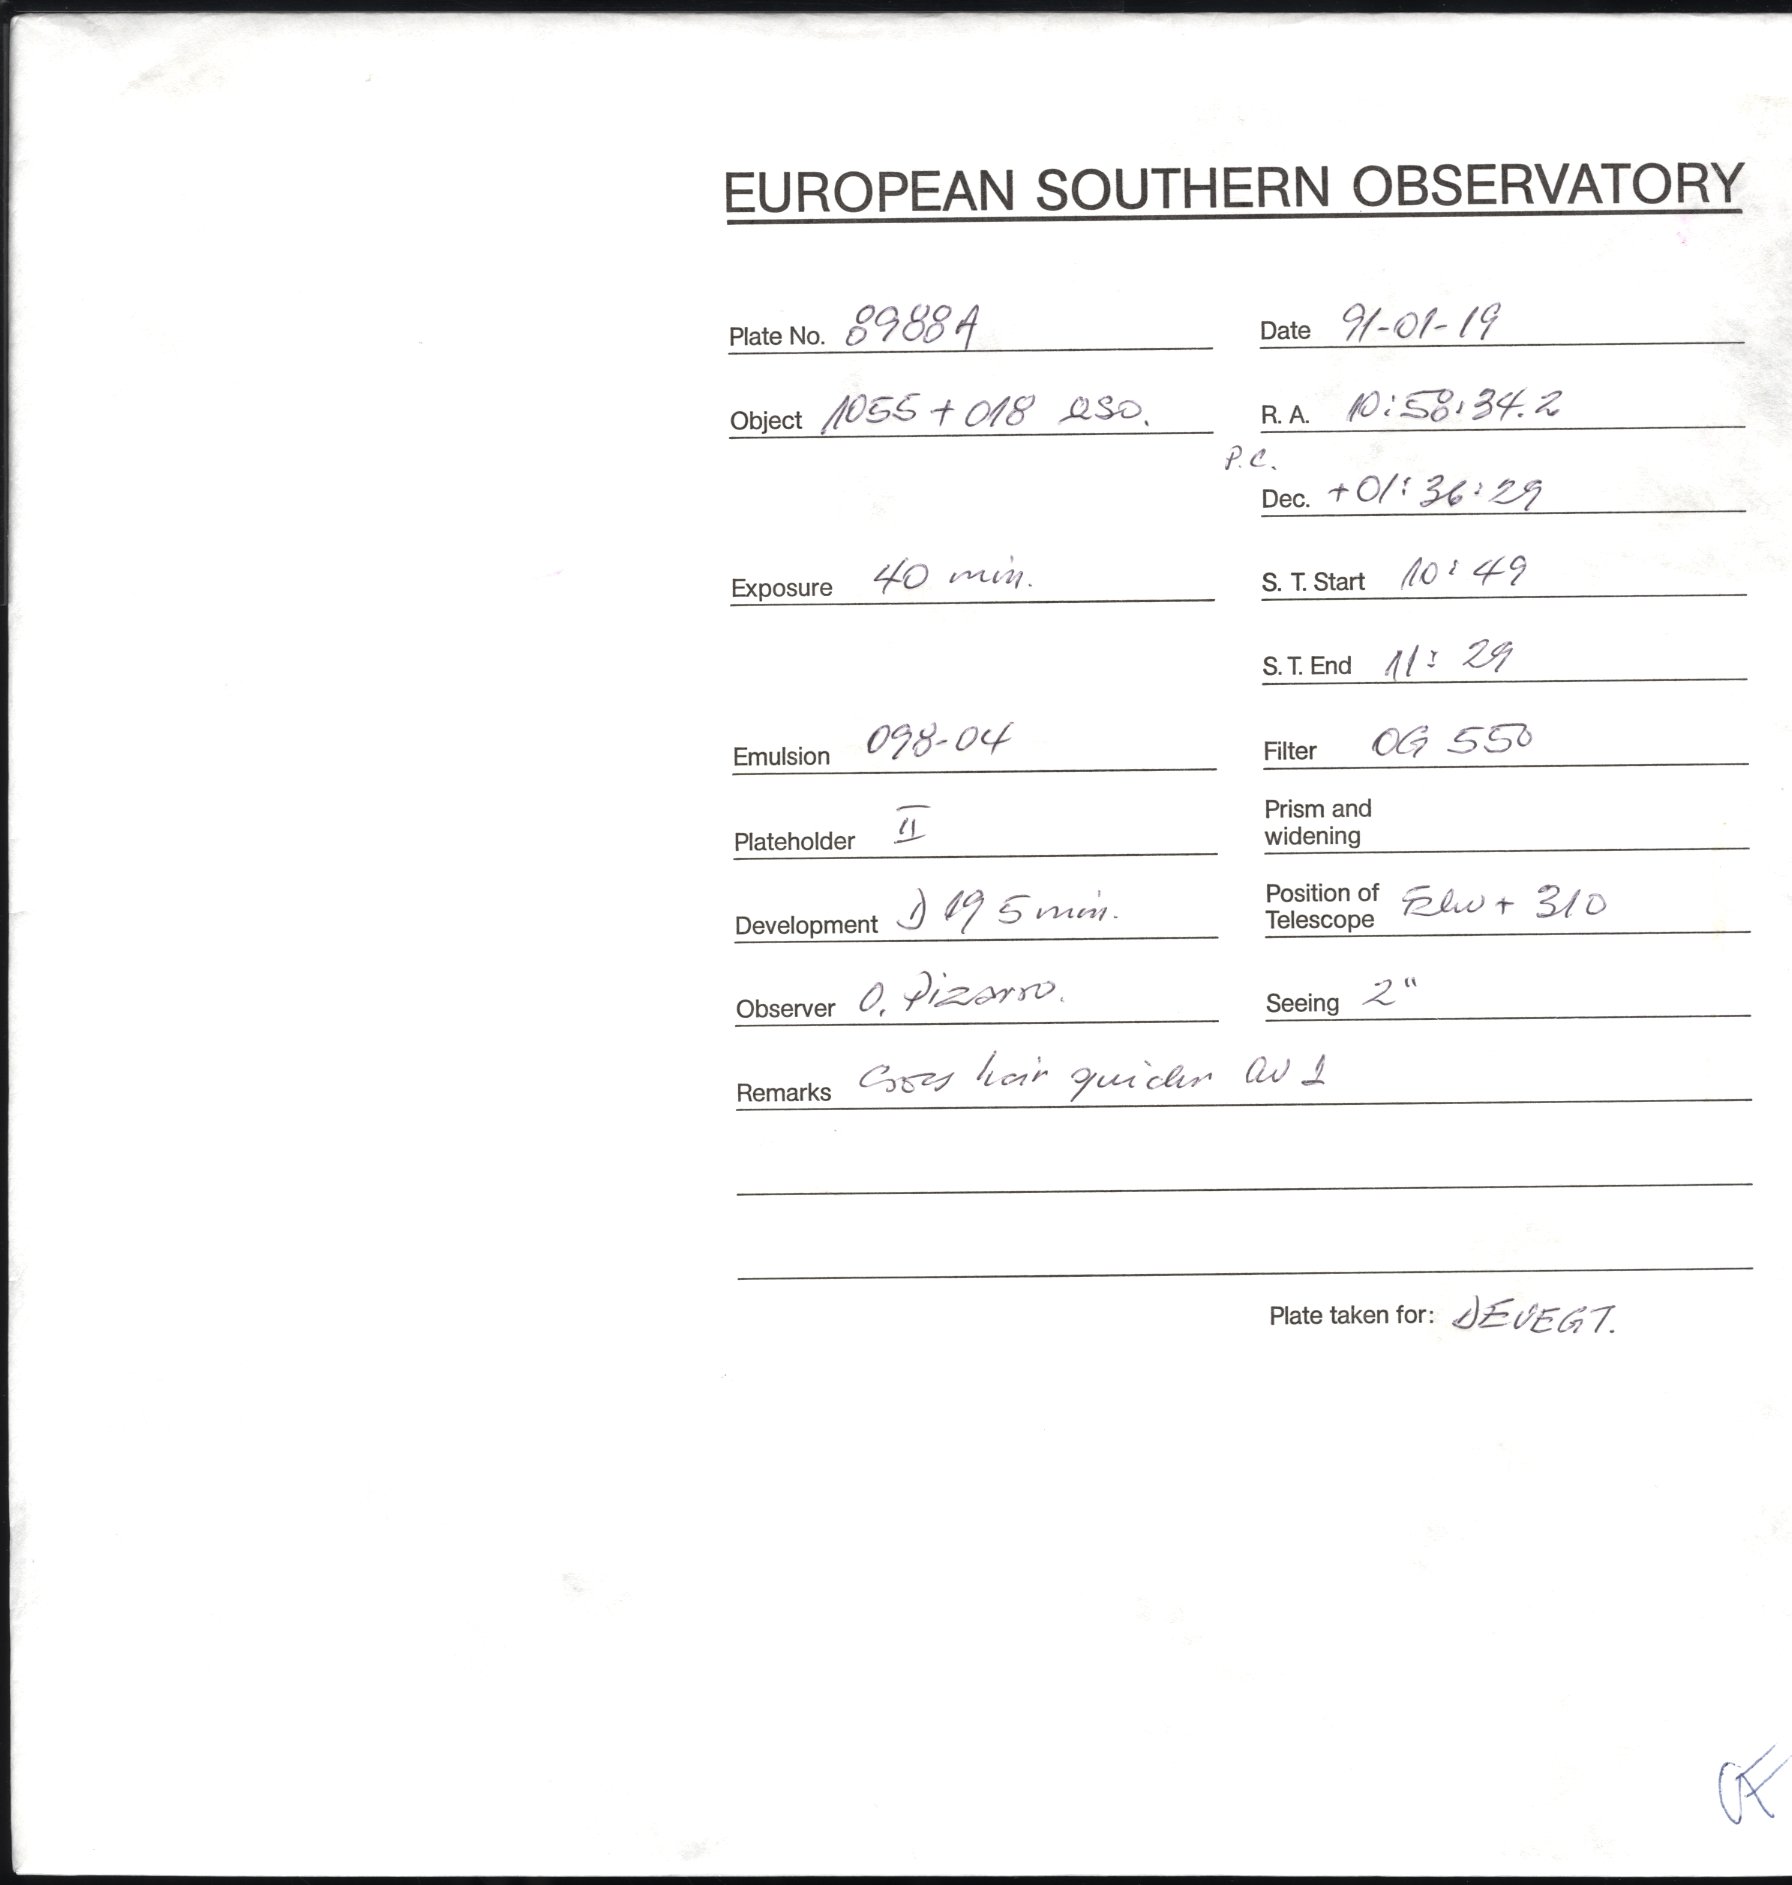 EUROPEAN SOUTHERN OBSERVATORY
Plate No. 8988A Date 91-01-19
Object 1055+018 QSO. R. A. 10:58:34.2
P.C.
Dec. +01:36:29
Exposure 40 min. S. T. Start 10:49
S. T. End 11:29
Emulsion 098-04 Filter OG 550
Plateholder II Prism and
widening
Development D 19 5 min. Position of
Telescope + 310
Observer O. Pizarro. Seeing 2"
Remarks hair
Plate taken for: DEVEGT.